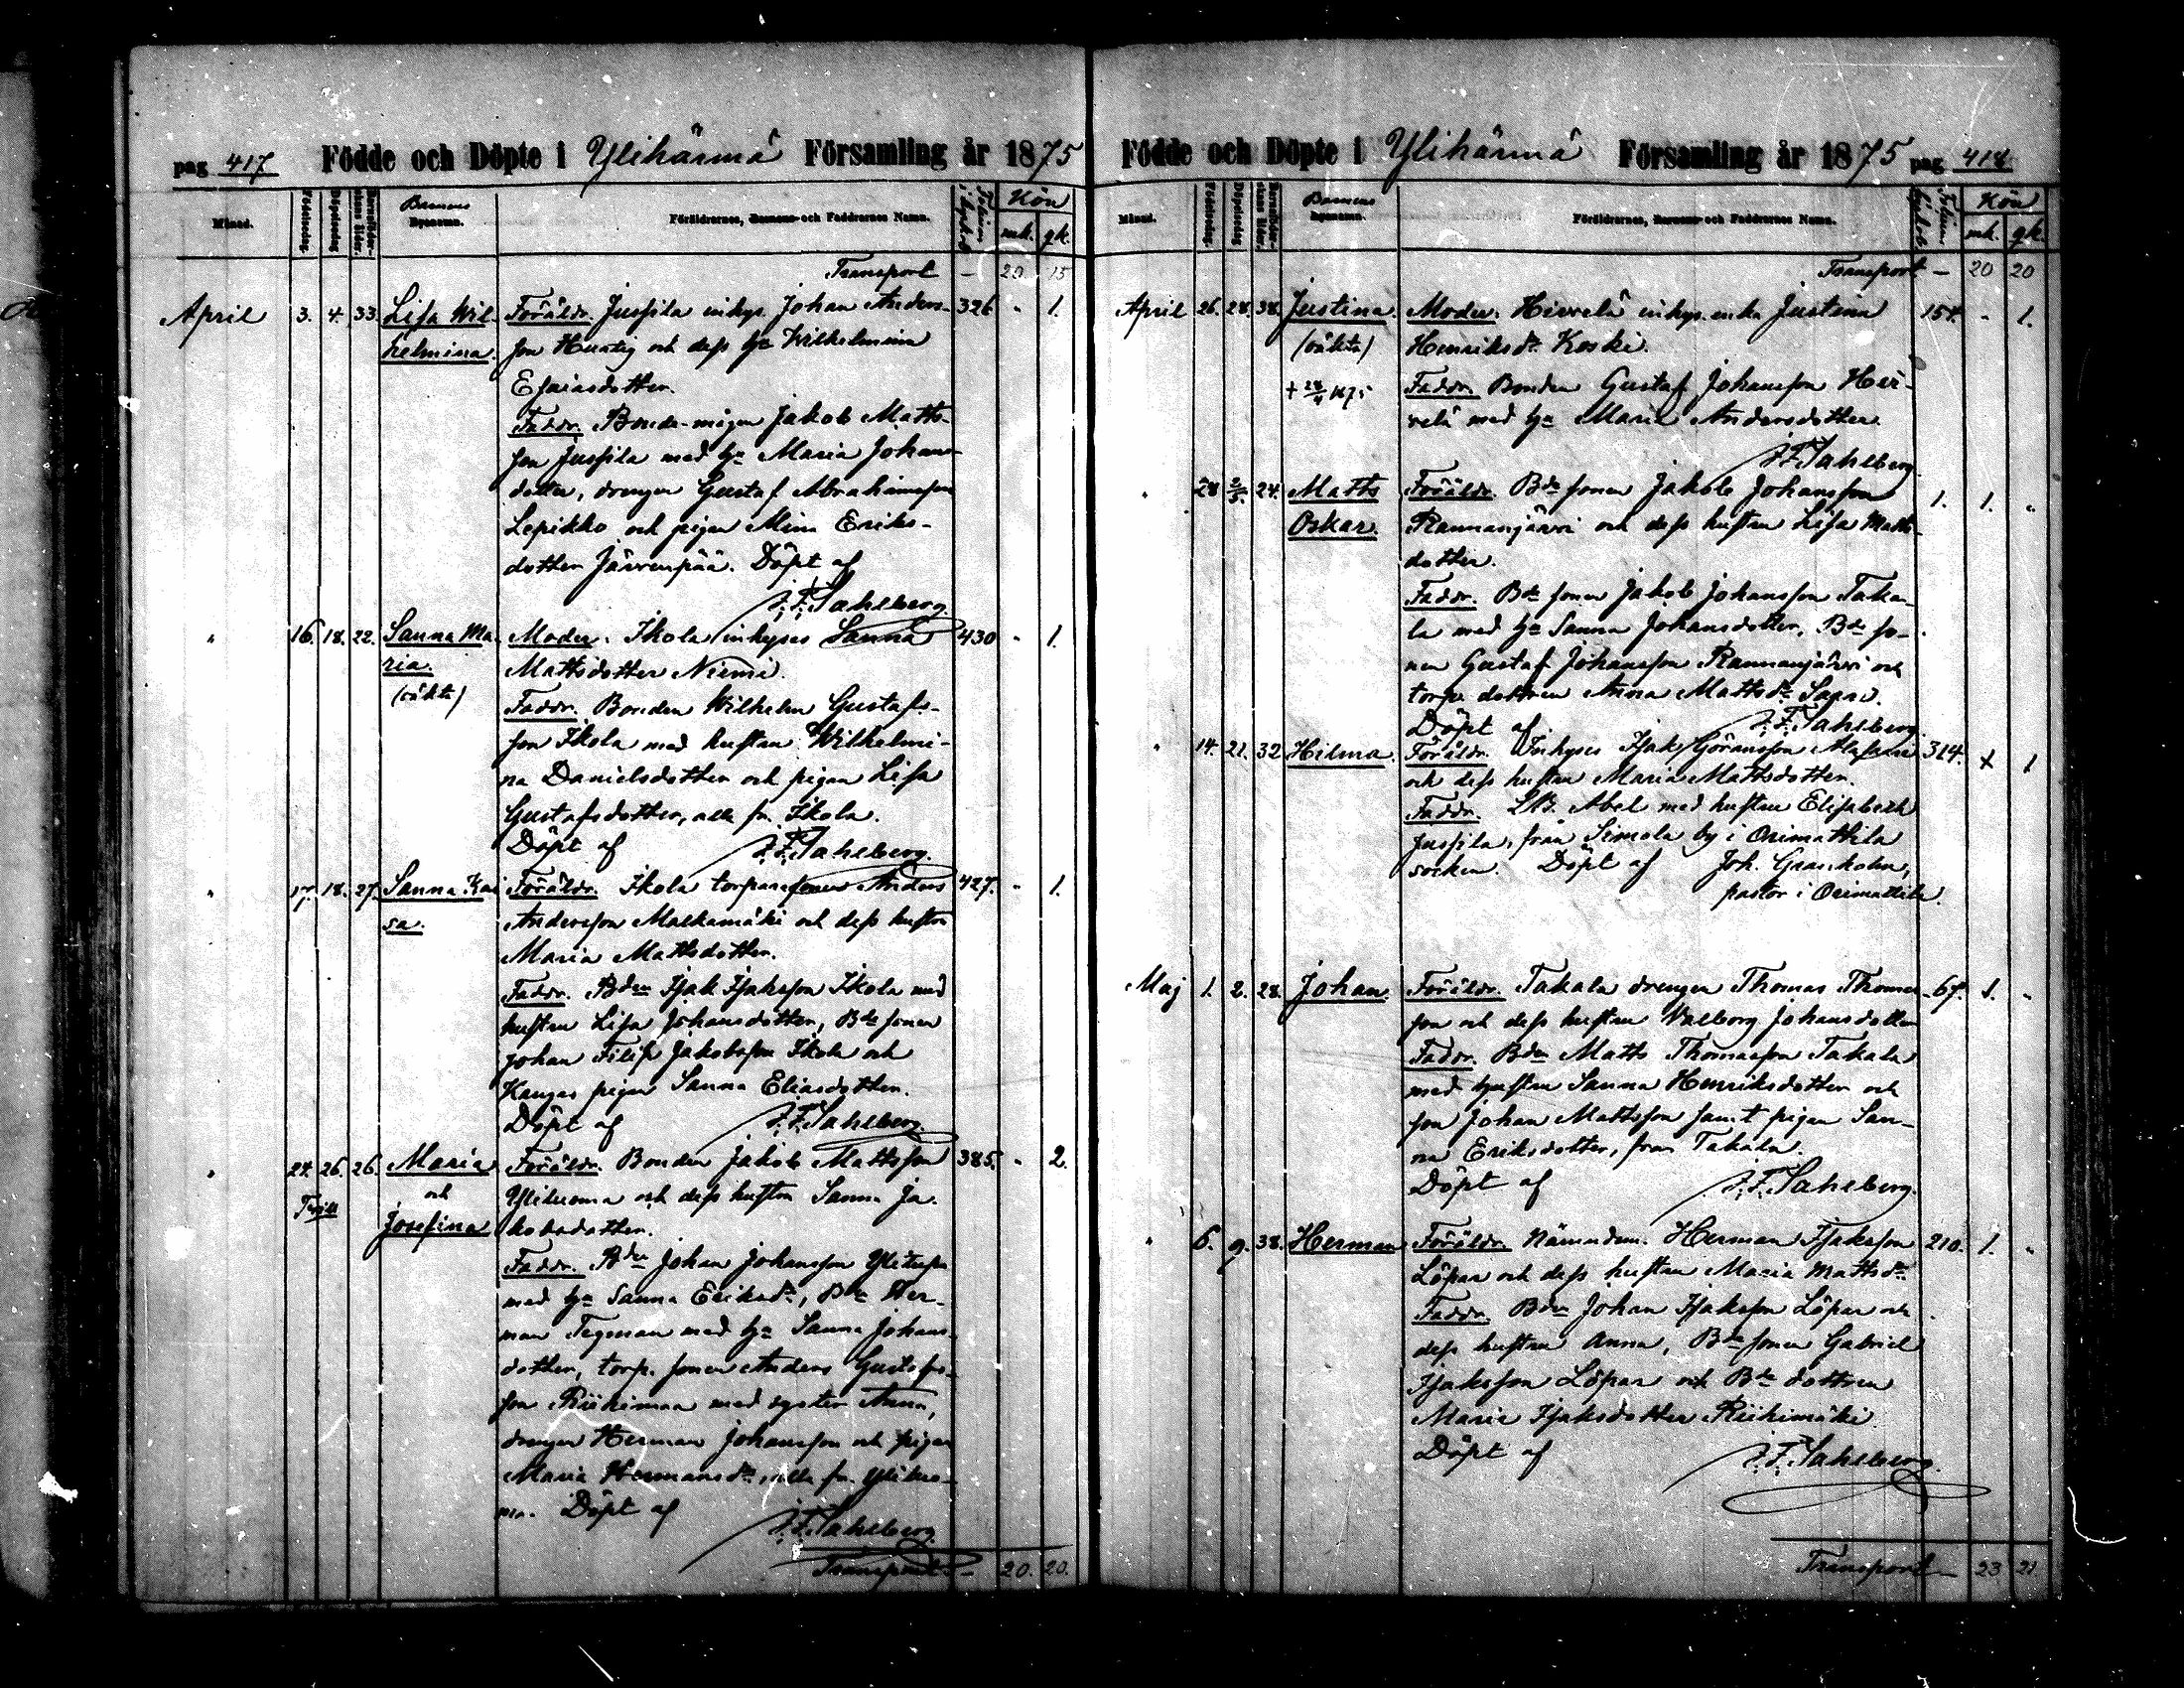 pag 417 Födde och Döpte i Ylihärmä Församling år 1875
Månad. Födelsedag. Döpelsedag. Barnens Föräldrarnes, Barnens och Faddrarnes Namn. Kön
mk. qk.
Transport — 20 15
April 3. 4. 33. Lisa Wil- Föräldr. Jussila inhys. Johan Anders- 326 " 1.
helmina. son och dess hu Wilhelmina
Esaiasdotter.
Faddr. Bonde-mågen Jakob Matts-
son Jussila med hu Maria Johans-
dotter, drengen Gustaf Abrahamsson
Lepikko och pigan Mina Eriks-
dotter Järvenpää. Döpt af
J. F. Sahlberg.
" 16. 18. 22. Sanna Ma- Moder. Ikola inhyses Sanna 430 " 1.
ria. Mattsdotter Niemi.
(oäkta) Faddr. Bonden Wilhelm Gustafs-
son Ikola med hustru Wilhelmi-
na Danielsdotter och pigan Lisa
Gustafsdotter, alla fr. Ikola.
Döpt af J. F. Sahlberg.
" 17. 18. 27. Sanna Kai Föräldr. Ikola torparesonen Anders 427. " 1.
sa. Andersson Malkamäki och dess hustru
Maria Mattsdotter.
Faddr. Bden Isak Isaksson Ikola med
hustru Lisa Johansdotter, Bde sonen
Johan Filip Jakobsson Ikola och
Kangas pigan Sanna Eliasdotter.
Döpt af J. F. Sahlberg.
" 24. 26. 26. Maria Föräldr. Bonden Jakob Mattsson 385. " 2.
Tvill och och dess hustru Sanna Ja-
Josefina kobsdotter.
Faddr. Bden Johan Johansson
med hu Sanna Eriksdr, Bde Her-
man Tegman med hu Sanna Johans-
dotter, torp. sonen Anders Gustafs-
son Riihimaa med syster Anna,
drengen Herman Johansson och pigan
Maria Hermansdr, alla fr.
Döpt af
J. F. Sahlberg.
Transport — 20. 20.
Födde och Döpte i Ylihärmä Församling år 1875 pag 418
Månad. Födelsedag. Döpelsedag Barnens Föräldrarnes, Barnens och Faddrarnes Namn. Kön
mk. qk.
Transport — 20 20
April 26. 28. 38. Justina. Moder. Hirvelä inhys. enka Justina 154. " 1.
(oäkta) Henriksdr Koski.
+ 28/4 1875 Faddr. Bonden Gustaf Johansson Hir-
velä med hu Maria Andersdotter.
J. F. Sahlberg.
" 28 2/5. 24. Matts Föräldr. Bde sonen Jakob Johansson 1. 1. "
Oskar. Rannanjärvi och dess hustru Lisa Matts-
dotter.
Faddr. Bde sonen Jakob Johansson Taka-
la med hu Sanna Johansdotter, Bde so-
nen Gustaf Johansson Rannanjärvi och
torp. dottren Anna Mattsdr
Döpt af J. F. Sahlberg.
" 14. 21. 32 Hilma. Föräldr. Inhyses Isak Göransson 314. + 1
och dess hustru Maria Mattsdotter.
Faddr. Abel med hustru Elisabeth
Jussila, från Simola by i Orimattila
socken. Döpt af Joh. Granholm,
pastor i Orimattila.
Maj 1. 2. 28. Johan. Föräldr. Takala drengen Thomas Thomas- 67. 1. "
son och dess hustru Walborg Johansdotter
Faddr. Bden Matts Thomasson Takala
med hustru Sanna Henriksdotter och
son Johan Mattsson samt pigan San-
na Eriksdotter, från Takala.
Döpt af J. F. Sahlberg.
" 6. 9. 38. Herman Föräldr. Nämndem. Herman Isaksson 210. 1. "
Löpar och dess hustru Maria Mattsdr
Faddr. Bden Johan Isaksson Löpar och
dess hustru Anna, Bde sonen Gabriel
Isaksson Löpar och Bde dottren
Maria Isaksdotter Riihimäki
Döpt af J. F. Sahlberg.
Transport — 23 21